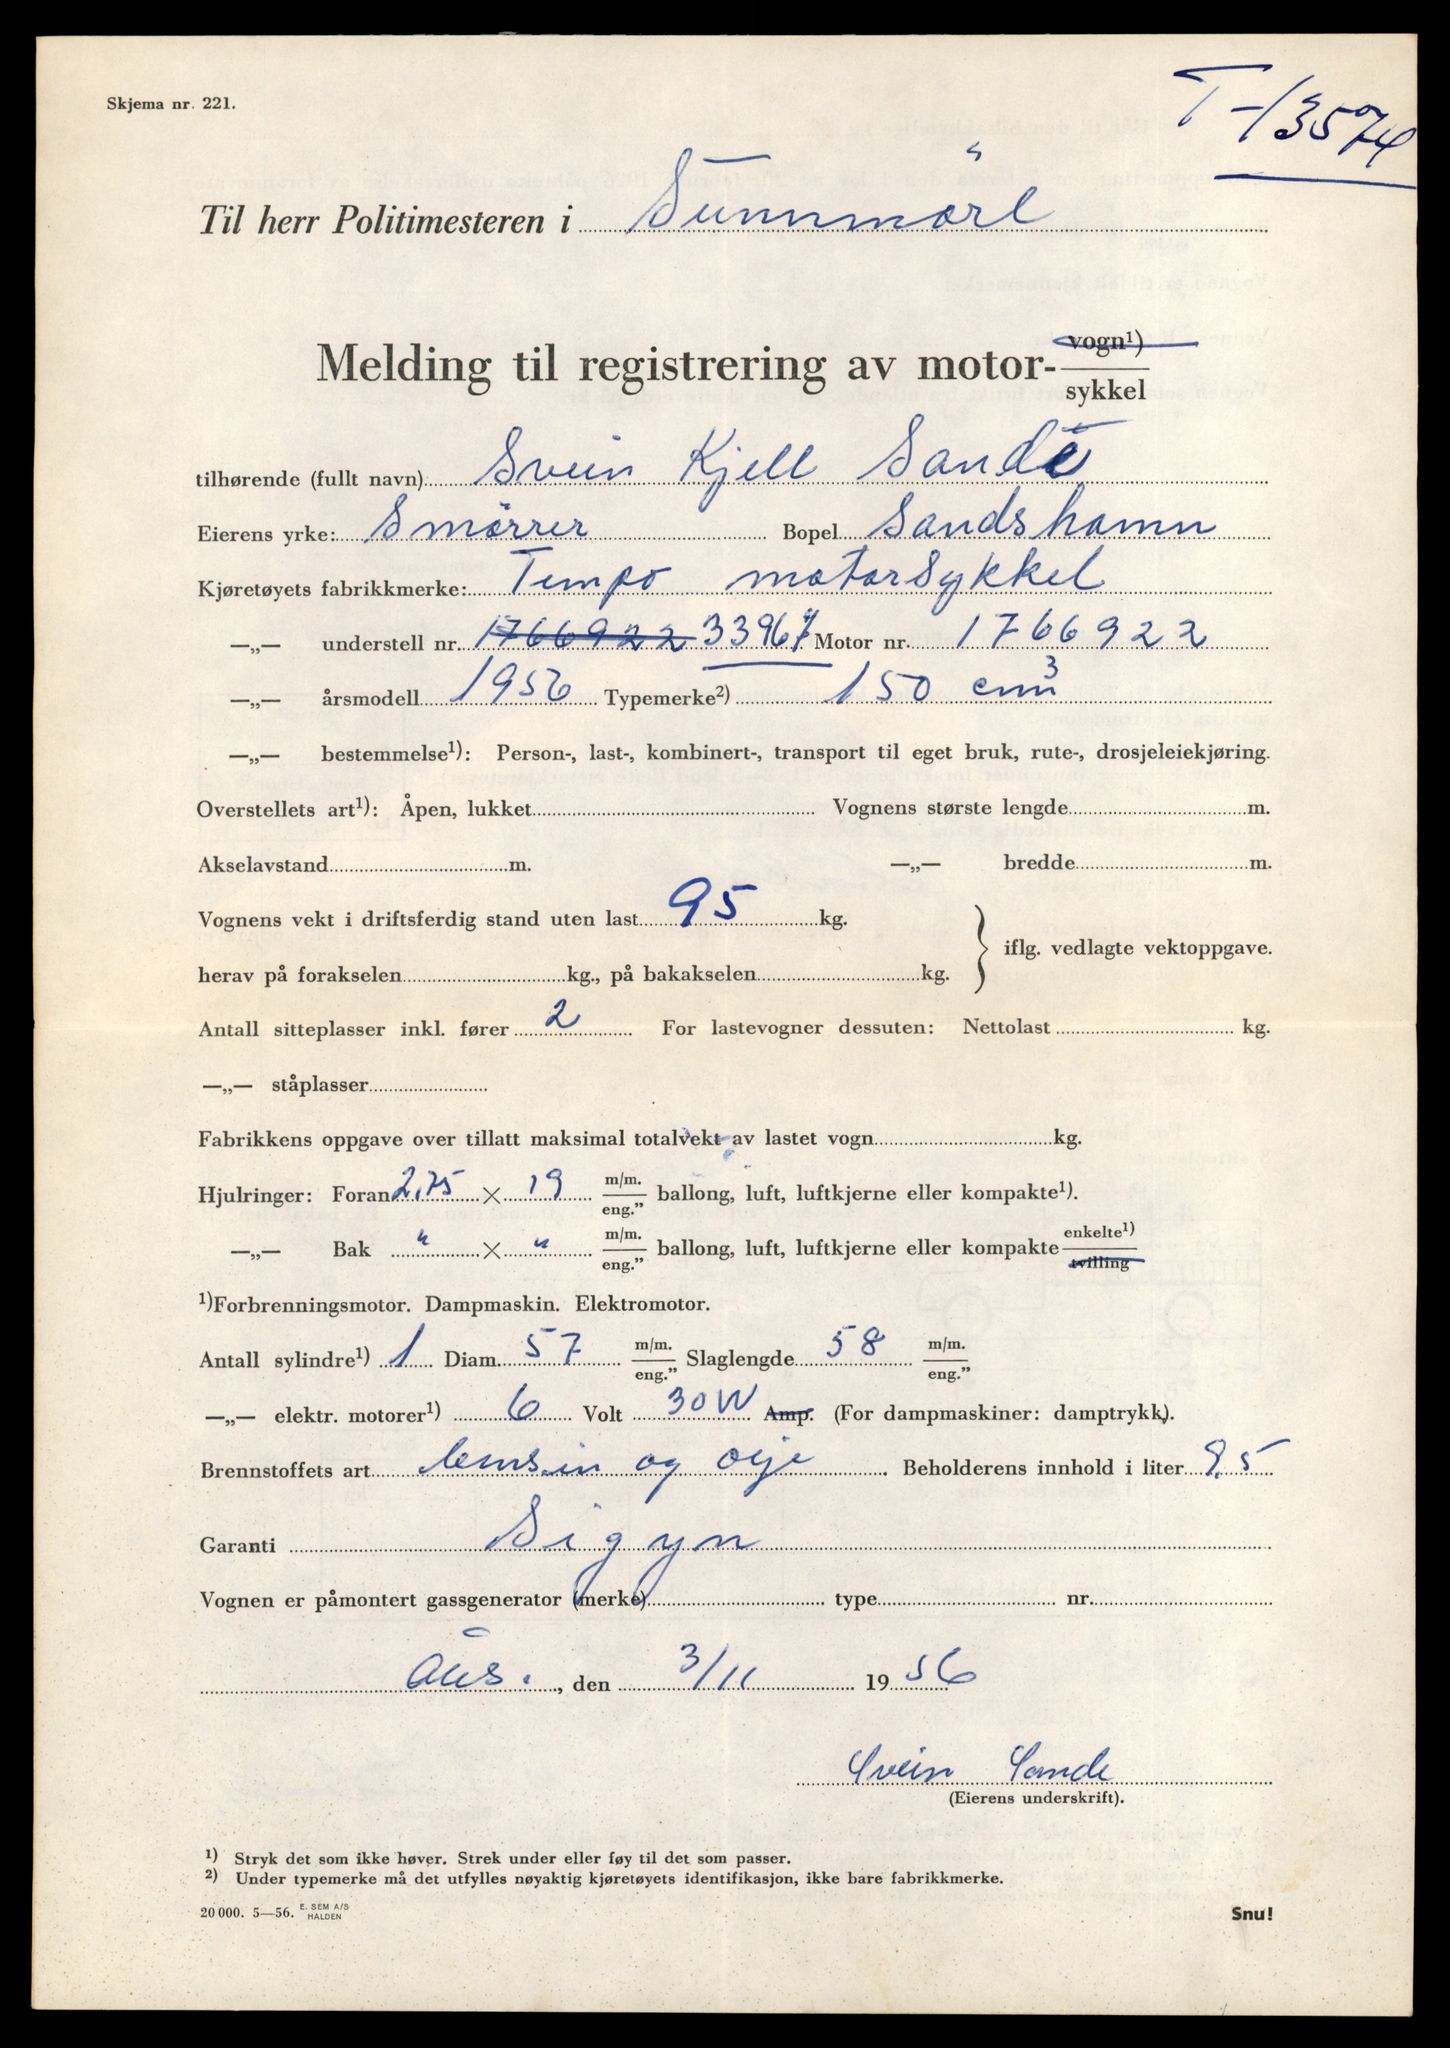 Skjema nr. 221.
T-13574
Til herr Politimesteren i Sunnmöre
Melding til registrering av motor- vogn¹) sykkel
tilhørende (fullt navn) Svein Kjell Sande
Eierens yrke: Smörrer Bopel Sandshamn
Kjøretøyets fabrikkmerke: Tempo motorsykkel
—„— understell nr. 1766922 33967 Motor nr. 1766922
—„— årsmodell 1956 Typemerke²) 150 cm³
—„— bestemmelse¹): Person-, last-, kombinert-, transport til eget bruk, rute-, drosjeleiekjøring.
Overstellets art¹): Åpen, lukket Vognens største lengde m.
Akselavstand m. —„— bredde m.
Vognens vekt i driftsferdig stand uten last 95 kg.
herav på forakselen kg., på bakakselen kg. } iflg. vedlagte vektoppgave.
Antall sitteplasser inkl. fører 2 For lastevogner dessuten: Nettolast kg.
—„— ståplasser
Fabrikkens oppgave over tillatt maksimal totalvekt av lastet vogn kg.
Hjulringer: Foran 2,75 × 19 m/m. eng.” ballong, luft, luftkjerne eller kompakte¹).
—„— Bak " × " m/m. eng.” ballong, luft, luftkjerne eller kompakte enkelte¹) tvilling
¹)Forbrenningsmotor. Dampmaskin. Elektromotor.
Antall sylindre¹) 1 Diam. 57 m/m. eng.” Slaglengde 58 m/m. eng.”
—„— elektr. motorer¹) 6 Volt 30W Amp. (For dampmaskiner: damptrykk).
Brennstoffets art bensin og olje Beholderens innhold i liter 9,5
Garanti Sigyn
Vognen er påmontert gassgenerator (merke) type nr.
Åls., den 3/11 1956
Svein Sande
(Eierens underskrift).
¹) Stryk det som ikke høver. Strek under eller føy til det som passer.
²) Under typemerke må det utfylles nøyaktig kjøretøyets identifikasjon, ikke bare fabrikkmerke.
20 000. 5—56. E. SEM A/S HALDEN
Snu!